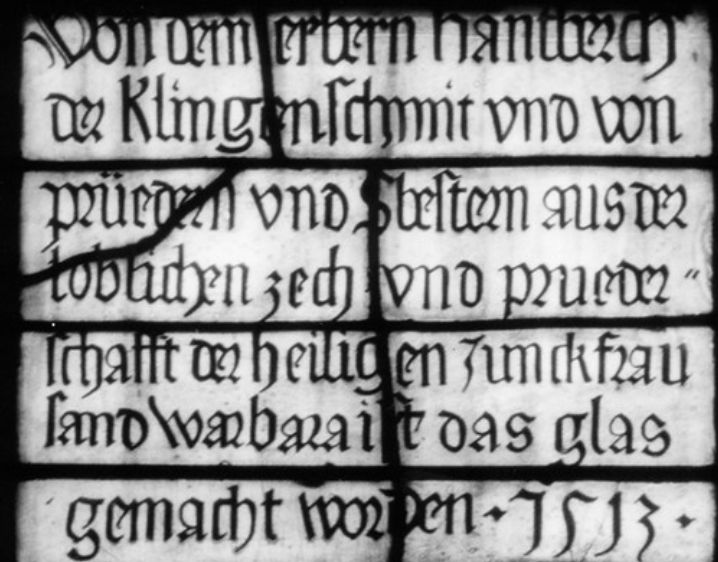 Von dem erbern hantberch
der Klingenschmit vnd von
prüedern vnd Sbestern aus der
loblichen zech vnd prueder"
schafft der heiligen Junckfrau
sand Warbara ist das glas
gemacht worden · 1513 ·